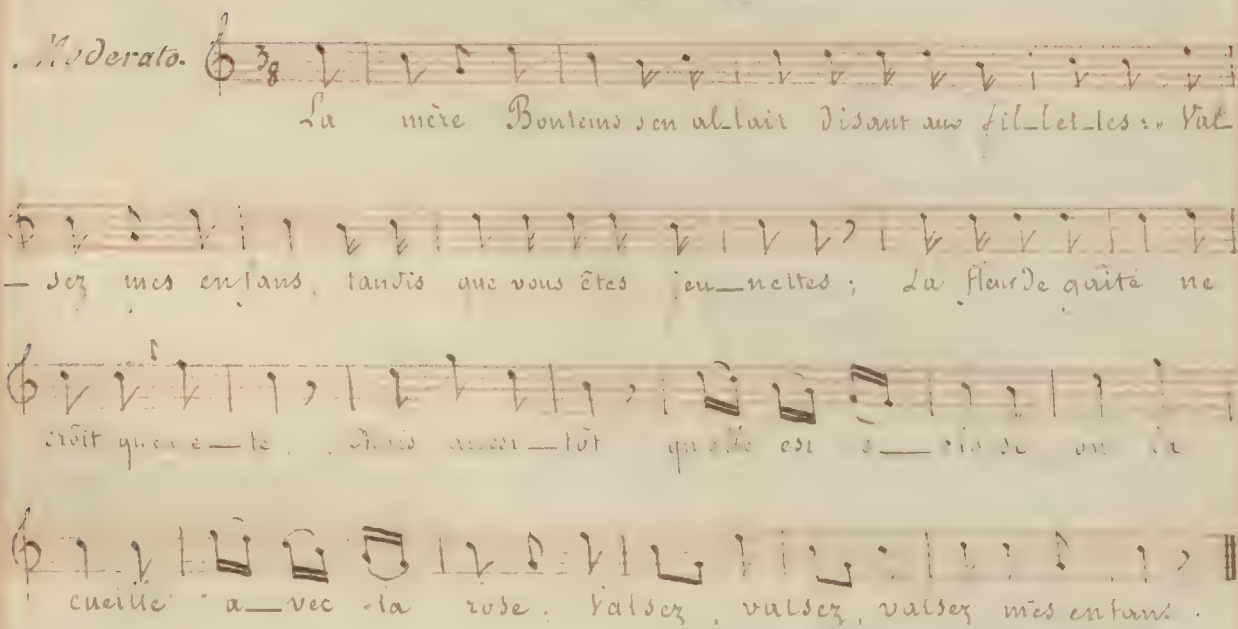 Moderato.
La mère Bontems s'en al_lait disant aux fil_let_tes : Val_
_ sez mes enfans, tandis que vous êtes jeu_nettes ; La fleur de gaîté ne
croît qu'en é_té. Mais aussi_tôt qu'elle est é_close on la
cueille a_vec la rose. Valsez, valsez, valsez mes enfans.